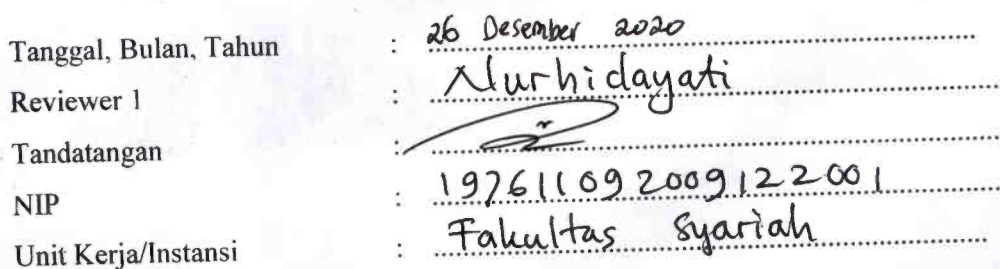 Tanggal, Bulan, Tahun : 26 Desember 2020
Reviewer 1 : Nurhidayati
Tandatangan :
NIP : 197611092009122001
Unit Kerja/Instansi : Fakultas Syariah